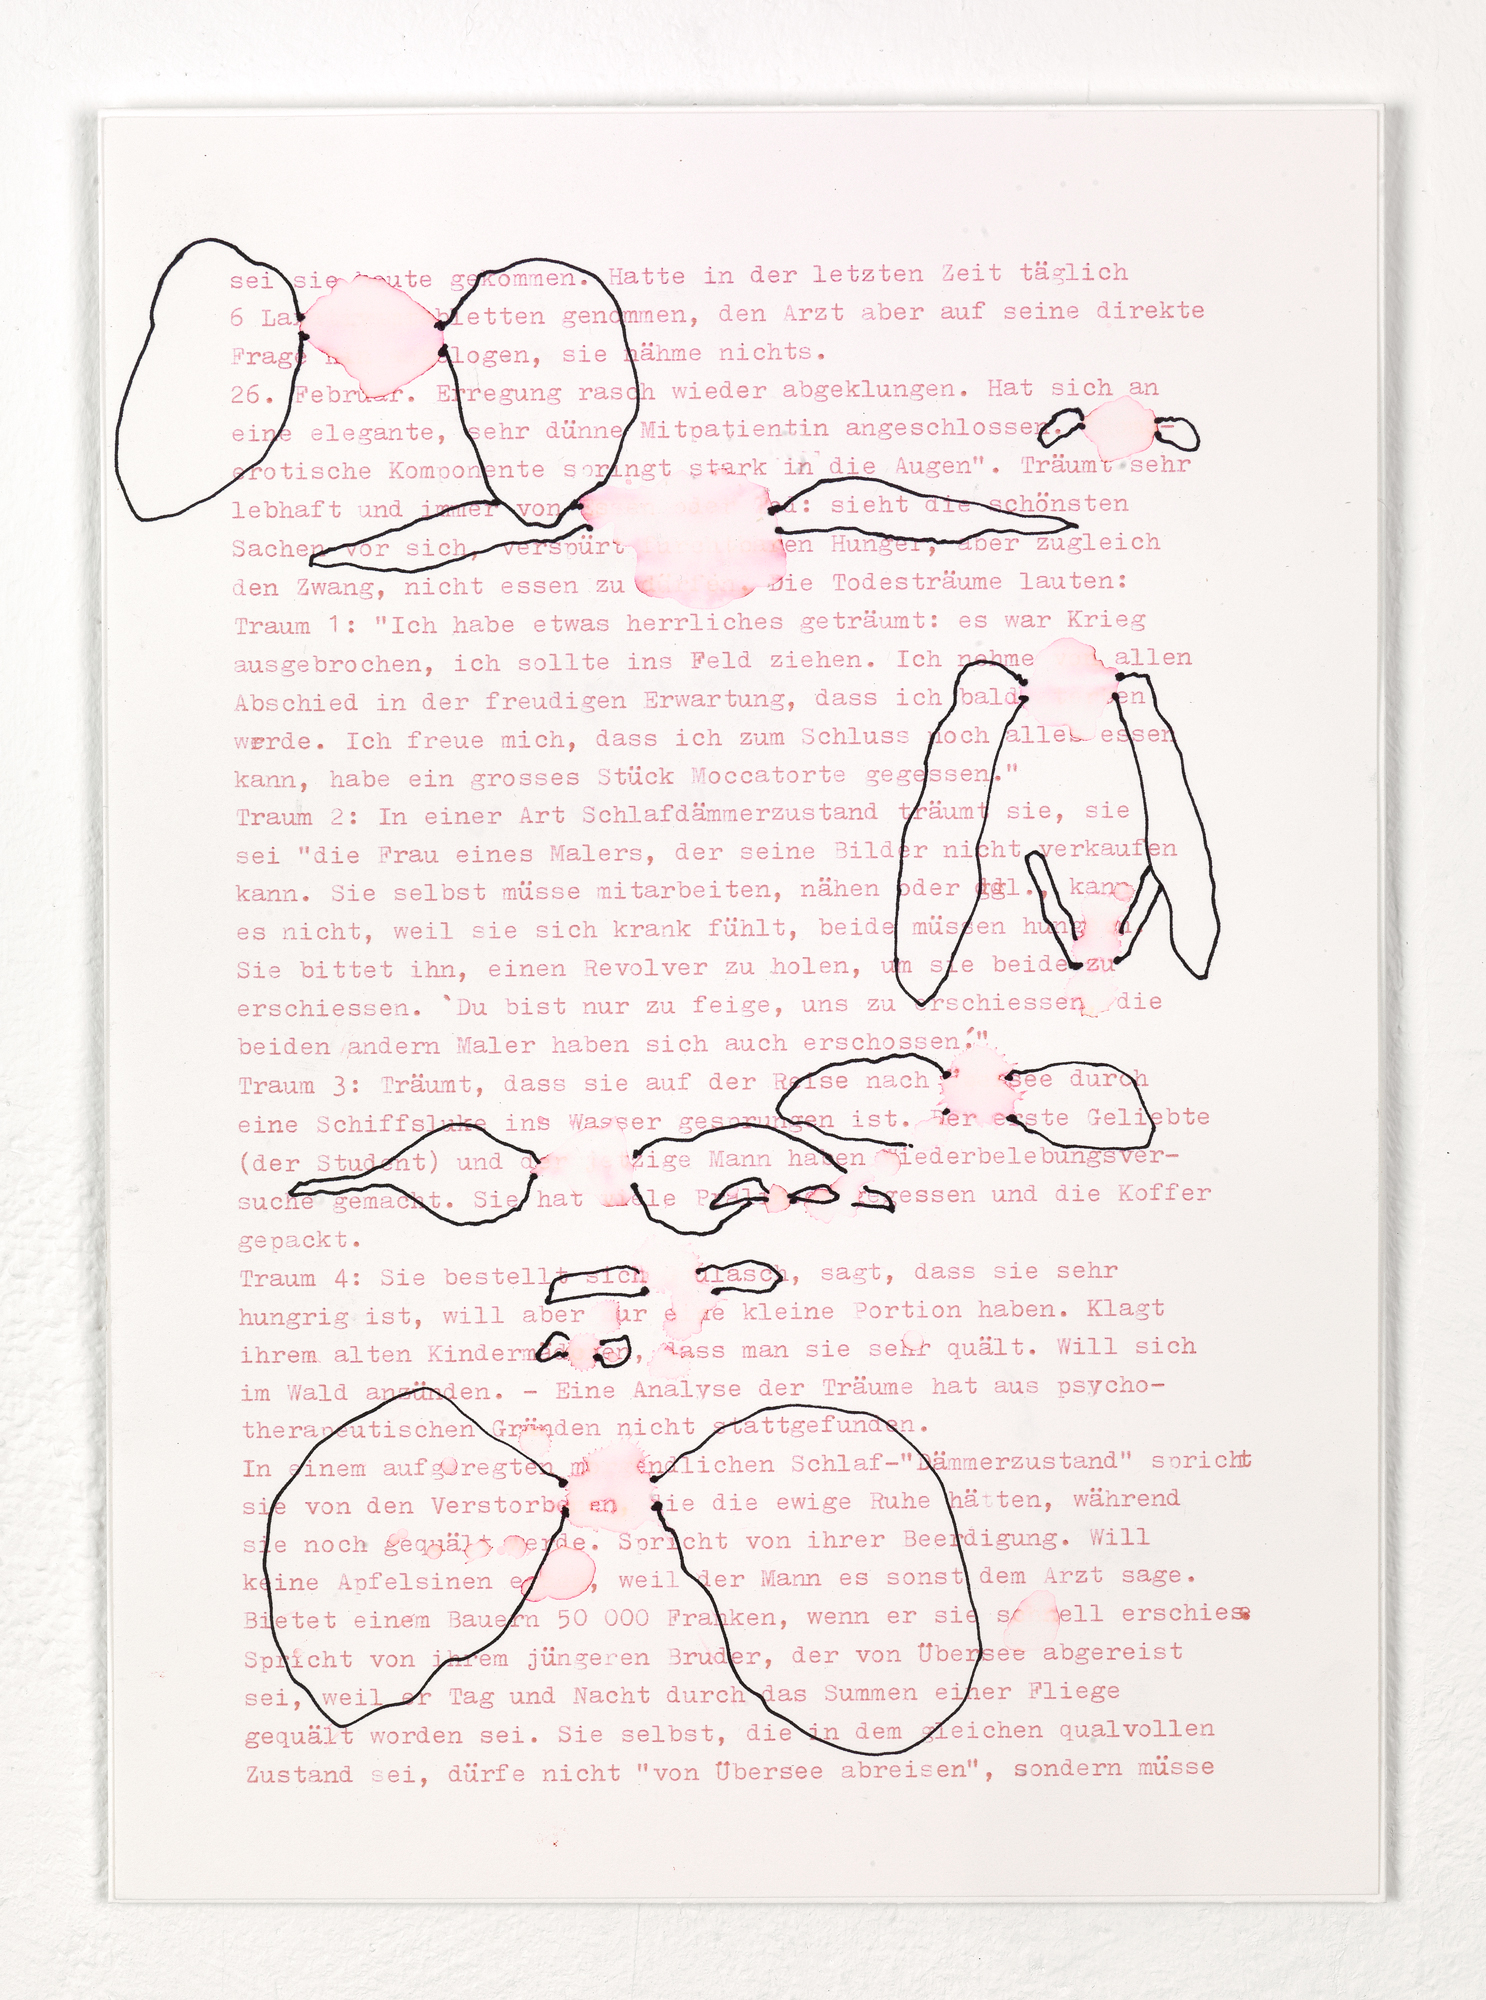 sei sie heute gekommen. Hatte in der letzten Zeit täglich
6 genommen, den Arzt aber auf seine direkte
Frage sie nähme nichts.
26. Februar. Erregung rasch wieder abgeklungen. Hat sich an
eine elegante, sehr dünne Mitpatientin angeschlossen.
erotische Komponente springt stark in die Augen". Träumt sehr
lebhaft und immer von sieht die schönsten
Sachen vor sich, verspürt Hunger, aber zugleich
den Zwang, nicht essen zu dürfen. Die Todesträume lauten:
Traum 1: "Ich habe etwas herrliches geträumt: es war Krieg
ausgebrochen, ich sollte ins Feld ziehen. Ich nehme allen
Abschied in der freudigen Erwartung, dass ich bald
werde. Ich freue mich, dass ich zum Schluss noch alles essen
kann, habe ein grosses Stück Moccatorte gegessen."
Traum 2: In einer Art Schlafdämmerzustand träumt sie, sie
sei "die Frau eines Malers, der seine Bilder nicht verkaufen
kann. Sie selbst müsse mitarbeiten, nähen oder dgl., kann
es nicht, weil sie sich krank fühlt, beide müssen
Sie bittet ihn, einen Revolver zu holen, um sie beide zu
erschiessen. 'Du bist nur zu feige, uns zu erschiessen, die
beiden andern Maler haben sich auch erschossen.'"
Traum 3: Träumt, dass sie auf der Reise nach durch
eine Schiffsluke ins Wasser gesprungen ist. Der erste Geliebte
(der Student) und der jetzige Mann haben Wiederbelebungsver-
suche gemacht. Sie hat viele gegessen und die Koffer
gepackt.
Traum 4: Sie bestellt sich sagt, dass sie sehr
hungrig ist, will aber nur eine kleine Portion haben. Klagt
ihrem alten Kindermädchen, dass man sie sehr quält. Will sich
im Wald anzünden. - Eine Analyse der Träume hat aus psycho-
therapeutischen Gründen nicht stattgefunden.
In einem aufgeregten Schlaf-"Dämmerzustand" spricht
sie von den Verstorbenen, die die ewige Ruhe hätten, während
sie noch gequält werde. Spricht von ihrer Beerdigung. Will
keine Apfelsinen weil der Mann es sonst dem Arzt sage.
Bietet einem Bauern 50 000 Franken, wenn er sie schnell erschiess
Spricht von ihrem jüngeren Bruder, der von Übersee abgereist
sei, weil er Tag und Nacht durch das Summen einer Fliege
gequält worden sei. Sie selbst, die in dem gleichen qualvollen
Zustand sei, dürfe nicht "von Übersee abreisen", sondern müsse